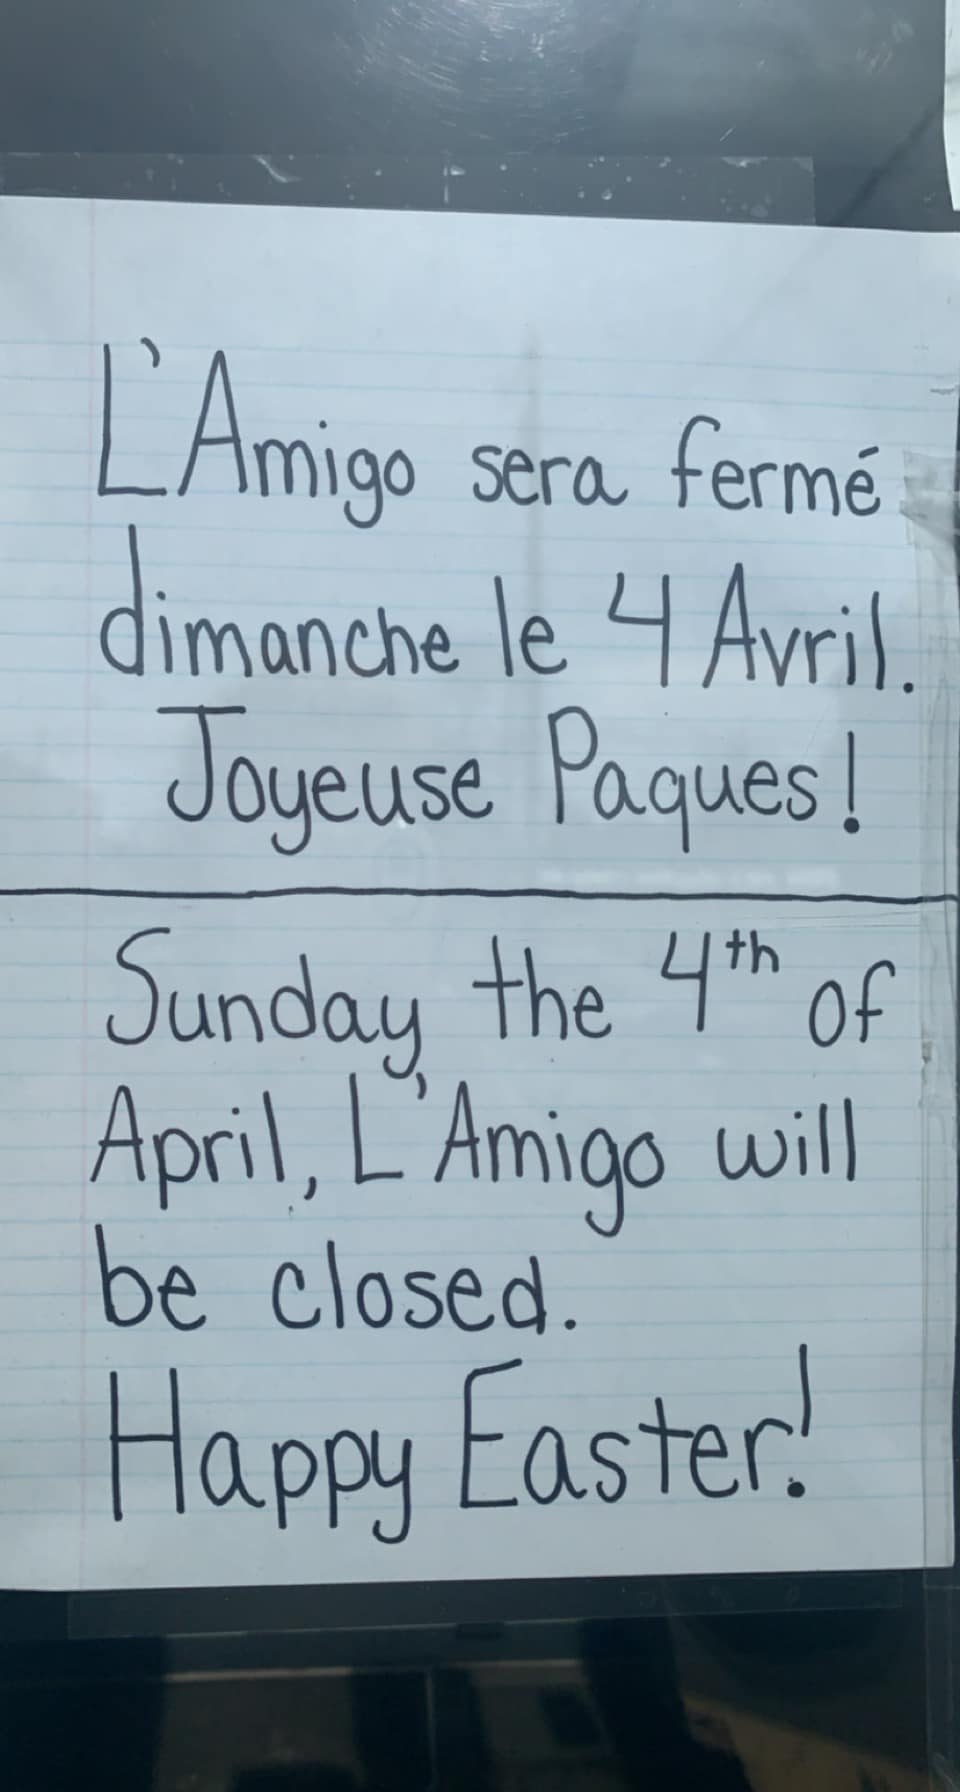 L'Amigo sera fermé
dimanche le 4 Avril.
Joyeuse Paques!
Sunday, the 4th of
April, L'Amigo will
be closed.
Happy Easter!